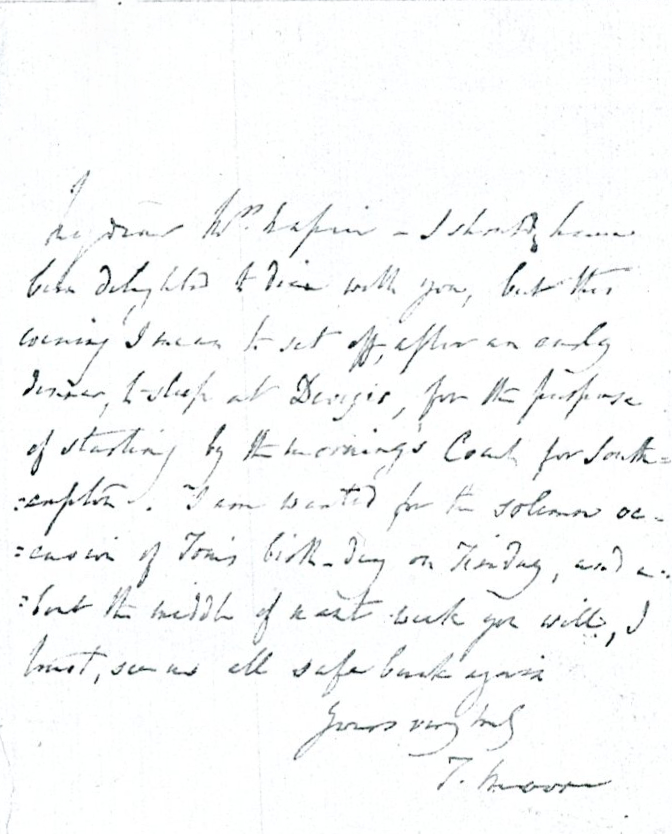 My dear Mrs Napier - I should have
been delighted to dine with you, but this
evening I mean to set off, after an early
dinner, to sleep at Devizes, for the purpose
of starting by the morning's Coach for South=
=ampton. I am wanted for the solemn oc=
=casion of Tom's birth-day on Tuesday, and a=
=bout the middle of next week you will, I
trust, see us all safe back again
Yours very truly
T. Moore